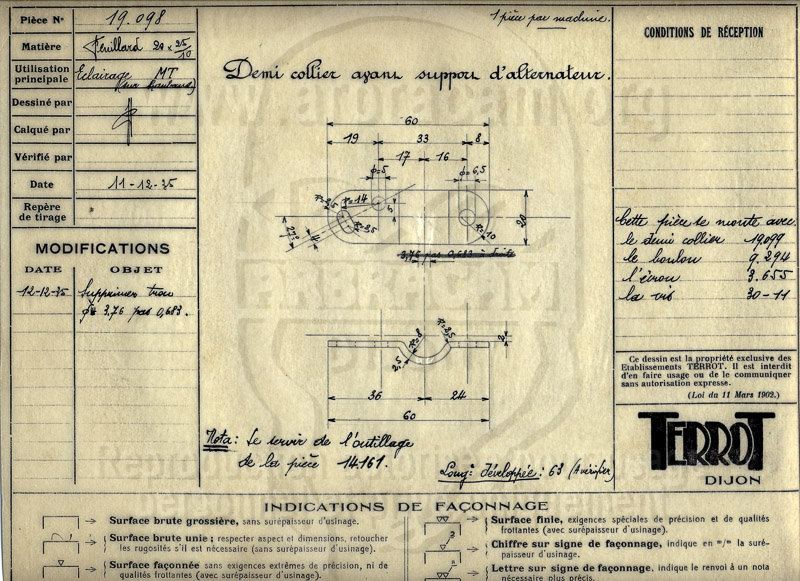 Pièce Nº 19.098
Matière Feuillard 20 x 25/10
Utilisation principale Eclairage MT
Dessiné par
Calqué par
Vérifié par
Date 11-12-35
Repère de tirage
MODIFICATIONS
DATE OBJET
12-12-35 Supprimer trou
3,76 pas 0,683.
1 pièce par machine.
Demi collier ayant support d'alternateur.
60
19 33 8
17 16
φ=5 φ=6,5
R=14
R=3,5
5
20
R=3,5
R=10
27°
4
R=8 R=2,5
2
2,5
36 24
60
Nota: Se servir de l'outillage
de la pièce 14161.
Longr développée: 63 (A vérifier)
CONDITIONS DE RÉCEPTION
Cette pièce se monte avec
le demi collier 19099
le boulon 9.294
l'écrou 3.655
la vis 30-11
Ce dessin est la propriété exclusive des
Etablissements TERROT. Il est interdit
d'en faire usage ou de le communiquer
sans autorisation expresse.
(Loi du 11 Mars 1902.)
TERROT
DIJON
INDICATIONS DE FAÇONNAGE
Surface brute grossière, sans surépaisseur d'usinage.
Surface brute unie; respecter aspect et dimensions, retoucher
les rugosités s'il est nécessaire (sans surépaisseur d'usinage).
Surface façonnée sans exigences extrêmes de précision, ni de
qualités frottantes (avec surépaisseur d'usinage).
Surface finie, exigences spéciales de précision et de qualités
frottantes (avec surépaisseur d'usinage).
Chiffre sur signe de façonnage, indique en m/m la suré-
paisseur d'usinage.
Lettre sur signe de façonnage, indique le renvoi à un nota
nécessaire plus précis.